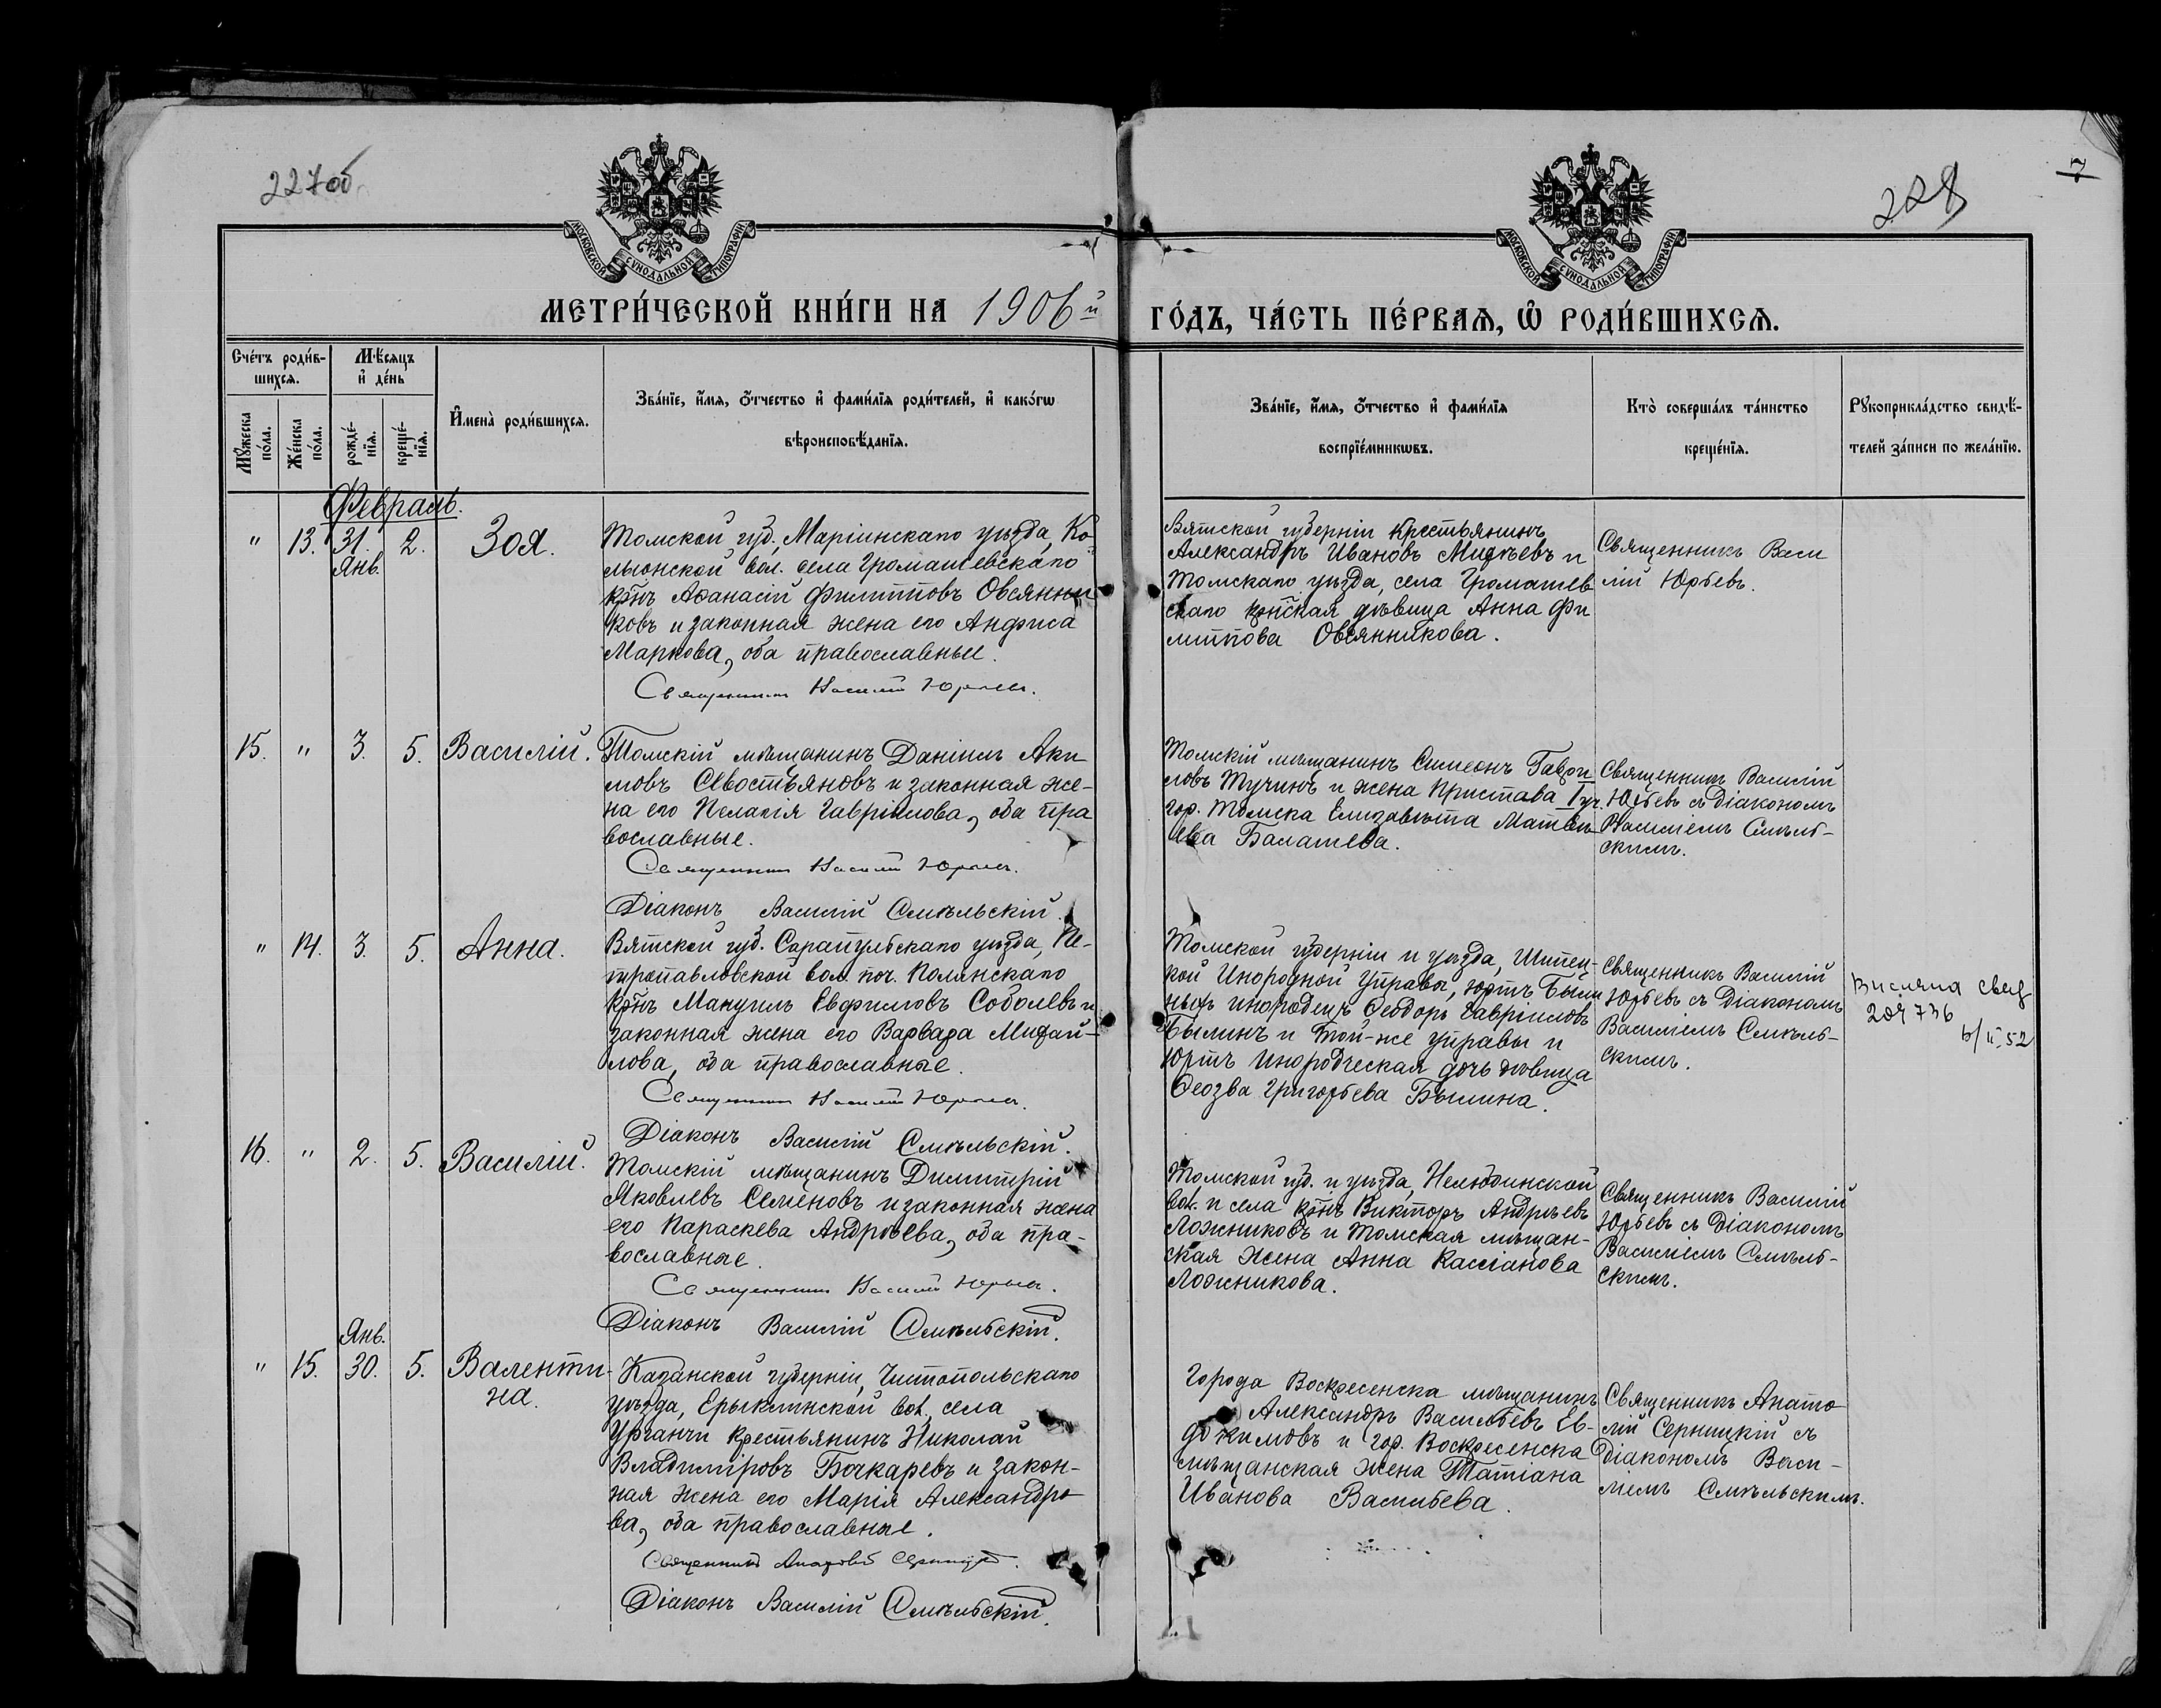 227об
228
7
МОСКОВСКОЙ СѴНОДАЛЬНОЙ ТИПОГРАФІИ
МОСКОВСКОЙ СѴНОДАЛЬНОЙ ТИПОГРАФІИ
МЕТРИ́ЧЕСКОЙ КНИ́ГИ НА 1906й
ГО́ДЪ, ЧА́СТЬ ПЕ́РВАѦ, Ѡ РОДИ́ВШИХСѦ.
Сче́тъ роди́в-
шихсѧ.
Мѣ́сяцъ
и де́нь
Мꙋ́жеска
по́ла.
Же́нска
по́ла.
рожде́-
нїѧ.
креще́-
нїѧ.
И҆мена̀ роди́вшихсѧ.
Зва́нїе, и҆́мѧ, ѻ҆́тчество и҆ фами́лїѧ роди́телей, и҆ како́гѡ
вѣроисповѣ́данїѧ.
Зва́нїе, и҆́мѧ, ѻ҆́тчество и҆ фами́лїѧ
воспрїе́мникѡвъ.
Кто̀ соверша́лъ та́инство
креще́нїѧ.
Рꙋкоприкла́дство свидѣ́-
телей за́писи по жела́нїю.
Февраль.
" 13. 31. 2. Зоя.
Янв.
Томской губ., Маріинскаго уѣзда, Ко-
льонской вол. села Громашевскаго
кр̃нъ Аѳанасій Филипповъ Овсянни
ковъ и законная жена его Анфиса
Маркова, оба православные.
Священникъ Василій Юрьевъ.
Вятской губерніи крестьянинъ
Александръ Ивановъ Михѣевъ и
Томскаго уѣзда, села Громашев
скаго кр̃нская дѣвица Анна Фи
липпова Овсянникова.
Священникъ Васи
лій Юрьевъ.
15. " 3. 5. Василій.
Томскій мѣщанинъ Даніилъ Аки
мовъ Севостьяновъ и законная же-
на его Пелагія Гавріилова, оба пра
вославные.
Священникъ Василій Юрьевъ.
Діаконъ Василій Смѣльскій.
Томскій мѣщанинъ Симеонъ Гаври
ловъ Тучинъ и жена Пристава I уч.
гор. Томска Елизавета Матвѣ
ева Балашева.
Священникъ Василій
Юрьевъ съ Діакономъ
Василіемъ Смѣль-
скимъ.
" 14. 3. 5. Анна.
Вятской губ. Сарапульскаго уѣзда, Пе-
тропавловской вол. поч. Полянскаго
кр̃нъ Мануилъ Евфимовъ Соболевъ и
законная жена его Варвара Михай-
лова, оба православные.
Священникъ Василій Юрьевъ.
Діаконъ Василій Смѣльскій.
Томской губерніи и уѣзда, Шепец-
кой Инородной Управы, юртъ Были
ныхъ инородецъ Ѳеодоръ Гавріиловъ
Былинъ и той-же управы и
юртъ инородческая дочь дѣвица
Ѳеозва Григорьева Былина.
Священникъ Василій
Юрьевъ съ Діакономъ
Василіемъ Смѣль-
скимъ.
204736
6/II.52
16. " 2. 5. Василій.
Томскій мѣщанинъ Димитрій
Яковлевъ Семеновъ и законная жена
его Параскева Андреева, оба пра-
вославные.
Священникъ Василій Юрьевъ.
Діаконъ Василій Смѣльскій.
Томской губ. и уѣзда, Нелюбинской
вол. и села кр̃нъ Викторъ Андреевъ
Ложниковъ и Томская мѣщан-
ская жена Анна Кассіанова
Ложникова.
Священникъ Василій
Юрьевъ съ Діакономъ
Василіемъ Смѣль-
скимъ.
Янв.
" 15. 30. 5. Валенти-
на.
Казанской губерніи, Чистопольскаго
уѣзда, Ерыклинской вол. села
Урганчи крестьянинъ Николай
Владиміровъ Бочкаревъ и закон-
ная жена его Марія Александро
ва, оба православные.
Священникъ Анатолій Серницкій.
Діаконъ Василій Смѣльскій.
Города Воскресенска мѣщанинъ
Александръ Васильевъ Ев-
докимовъ и гор. Воскресенска
мѣщанская жена Татіана
Иванова Васильева.
Священникъ Анато
лій Серницкій съ
Діакономъ Васи-
ліемъ Смѣльскимъ.